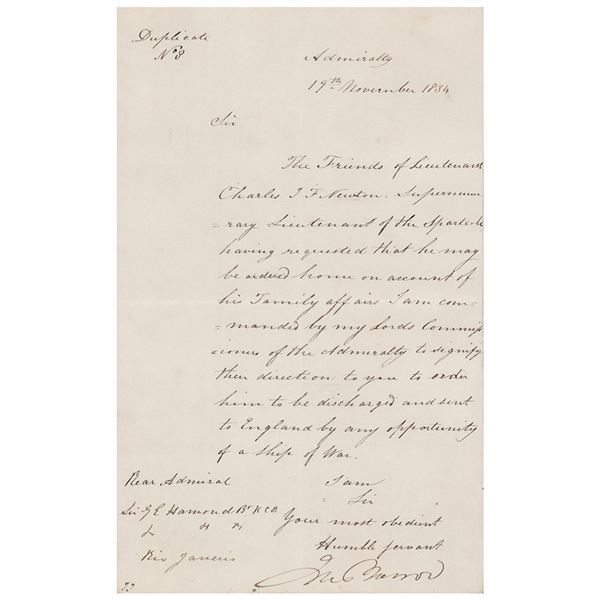 Duplicate
No. 8
Admiralty
19th November 1834
Sir
The Friends of Lieutenant
Charles J F Newton. Supernume
=rary Lieutenant of the Spartiate
having requested that he may
be ordered home on account of
his Family affairs I am com=
=manded by my Lords Commiss
=ioners of the Admiralty to signify
their direction to you to order
him to be discharged and sent
to England by any opportunity
of a Ship of War.
Rear Admiral
Sir G E Hamond Bt KCB
Rio Janeiro
I am
Sir
Your most obedient
Humble servant
Jn Barrow